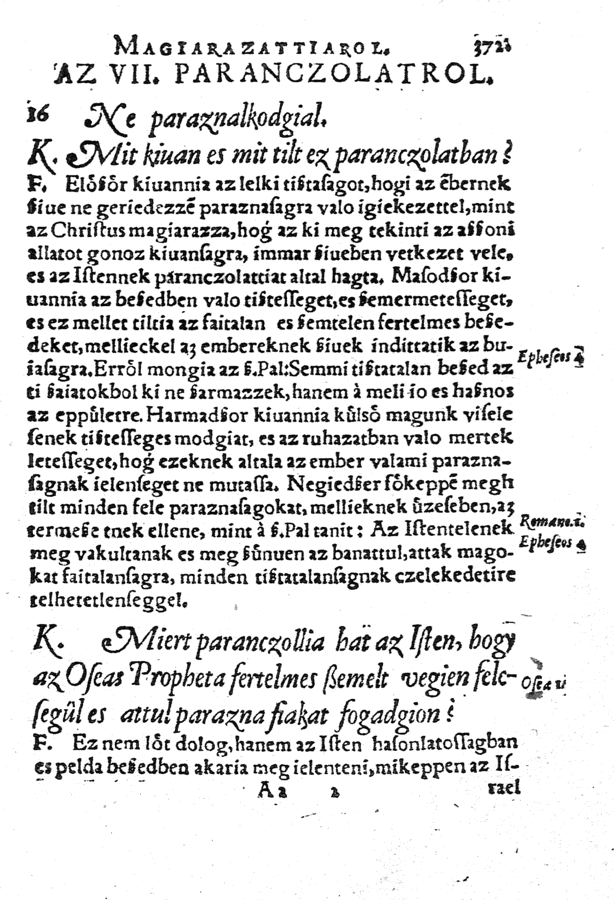 MAGIARAZATTIAROL. 372
AZ VII. PARANCZOLATROL.
16 Ne paraznalkodgial.
K. Mit kiuan es mit tilt ez paranczolatban?
F. Elősőr kiuannia az lelki tiſtaſagot, hogi az ēbernek
ſiue ne geriedezzē paraznaſagra valo igiekezettel, mint
az Chriſtus magiarazza, hoǵ az ki meg tekinti az aſſoni
allatot gonoz kiuanſagra, immar ſiueben vetkezet vele,
es az Iſtennek páranczolattiat altal hagta. Maſodſor ki-
uannia az beſedben valo tiſteſſeget, es ſemermeteſſeget,
es ez mellet tiltia az faitalan es ſemtelen fertelmes beſe-
deket, mellieckel az embereknek ſiuek indittatik az bu-
iaſagra. Erről mongia az ſ. Pal: Semmi tiſtatalan beſed az
Epheſeos 4
ti ſaiatokbol ki ne ſarmazzek, hanem à meli io es haſnos
az eppůletre. Harmadſor kiuannia kůlső magunk viſele
ſenek tiſteſſeges modgiat, es az ruhazatban valo mertek
leteſſeget, hoǵ ezeknek altala az ember valami parazna-
ſagnak ielenſeget ne mutaſſa. Negiedſer főkeppē megh
tilt minden fele paraznaſagokat, mellieknek ůzeſeben, az
termeſe tnek ellene, mint à ſ. Pal tanit: Az Iſtentelenek
Romano. 1.
meg vakultanak es meg ſůnuen az banattul, attak mago-
Epheſeos 4
kat faitalanſagra, minden tiſtatalanſagnak czelekedetire
telhetetlenſeggel.
K. Miert paranczollia hat az Iſten, hogy
az Oſeas Propheta fertelmes ßemelt vegien fele-
Oſea
ſegůl es attul parazna fiakat fogadgion?
F. Ez nem lőt dolog, hanem az Iſten haſonlatoſſagban
es pelda beſedben akaria meg ielenteni, mikeppen az Iſ-
Aa 2 rael